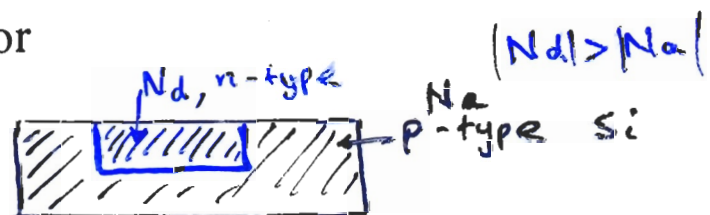 or
|Nd|>|Na|
Nd, n-type
Na
p-type Si